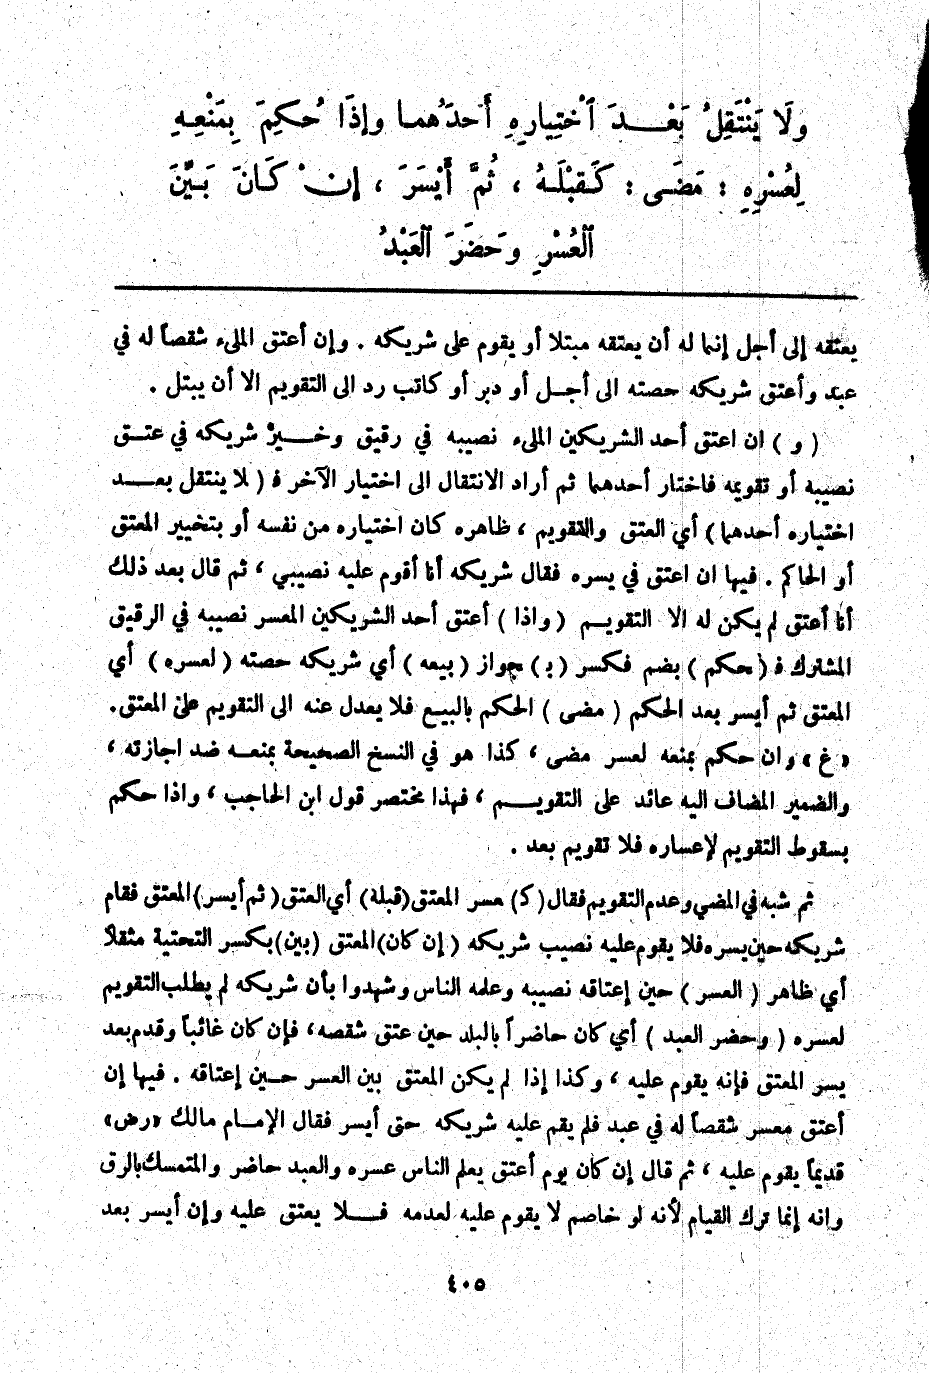 ولَا يَنْتَقِلُ بَعْدَ ٱخْتِيارِهِ أَحدَهُما وإذَا حُكِمَ بِمَنْعِهِ
لِعُسْرِهِ : مَضَى : كَقبْلَهُ ، ثُمَّ أَيْسَرَ ، إن كَانَ بَيِّنَ
ٱلْعُسْرِ وحَضَرَ ٱلْعَبْدُ
يعتقه إلى أجل إنما له أن يعتقه مبتلا أو يقوم على شريكه . وإن أعتق المليء شقصاً له في
عبد وأعتق شريكه حصته الى أجل أو دبر أو كاتب رد الى التقويم الا أن يبتل .
( و ) ان اعتق أحد الشريكين المليء نصيبه في رقيق وخير شريكه في عتق
نصيبه أو تقويمه فاختار أحدهما ثم أراد الانتقال الى اختيار الآخر فـ ( لا ينتقل بعد
اختياره أحدهما ) أي العتق والتقويم ، ظاهره كان اختياره من نفسه أو بتخيير المعتق
أو الحاكم . فيها ان اعتق في يسره فقال شريكه أنا أقوم عليه نصيبي ، ثم قال بعد ذلك
أنا أعتق لم يكن له الا التقويم ( واذا ) أعتق أحد الشريكين المعسر نصيبه في الرقيق
المشترك فـ ( حكم ) بضم فكسر ( بـ ) جواز ( بيعه ) أي شريكه حصته ( لعسره ) أي
المعتق ثم أيسر بعد الحكم ( مضى ) الحكم بالبيع فلا يعدل عنه الى التقويم على المعتق.
« غ » وان حكم بمنعه لعسر مضى ، كذا هو في النسخ الصحيحة بمنعه ضد اجازته ،
والضمير المضاف اليه عائد على التقويم ، فهذا مختصر قول ابن الحاجب ، واذا حكم
بسقوط التقويم لإعساره فلا تقويم بعد .
ثم شبه في المضي وعدم التقويم فقال ( كـ ) عسر المعتق (قبله) أي العتق ( ثم أيسر ) المعتق فقام
شريكه حين يسره فلا يقوم عليه نصيب شريكه ( إن كان ) المعتق ( بين ) بكسر التحتية مثقلاً
أي ظاهر ( العسر ) حين إعتاقه نصيبه وعلمه الناس وشهدوا بأن شريكه لم يطلب التقويم
لعسره ( وحضر العبد ) أي كان حاضراً بالبلد حين عتق شقصه، فإن كان غائباً وقدم بعد
يسر المعتق فإنه يقوم عليه ، وكذا إذا لم يكن المعتق بين العسر حين إعتاقه . فيها إن
أعتق معسر شقصاً له في عبد فلم يقم عليه شريكه حتى أيسر فقال الإمام مالك «رض»
قديماً يقوم عليه ، ثم قال إن كان يوم أعتق يعلم الناس عسره والعبد حاضر والمتمسك بالرق
وانه إنما ترك القيام لأنه لو خاصم لا يقوم عليه لعدمه فلا يعتق عليه وإن أيسر بعد
٤٠٥